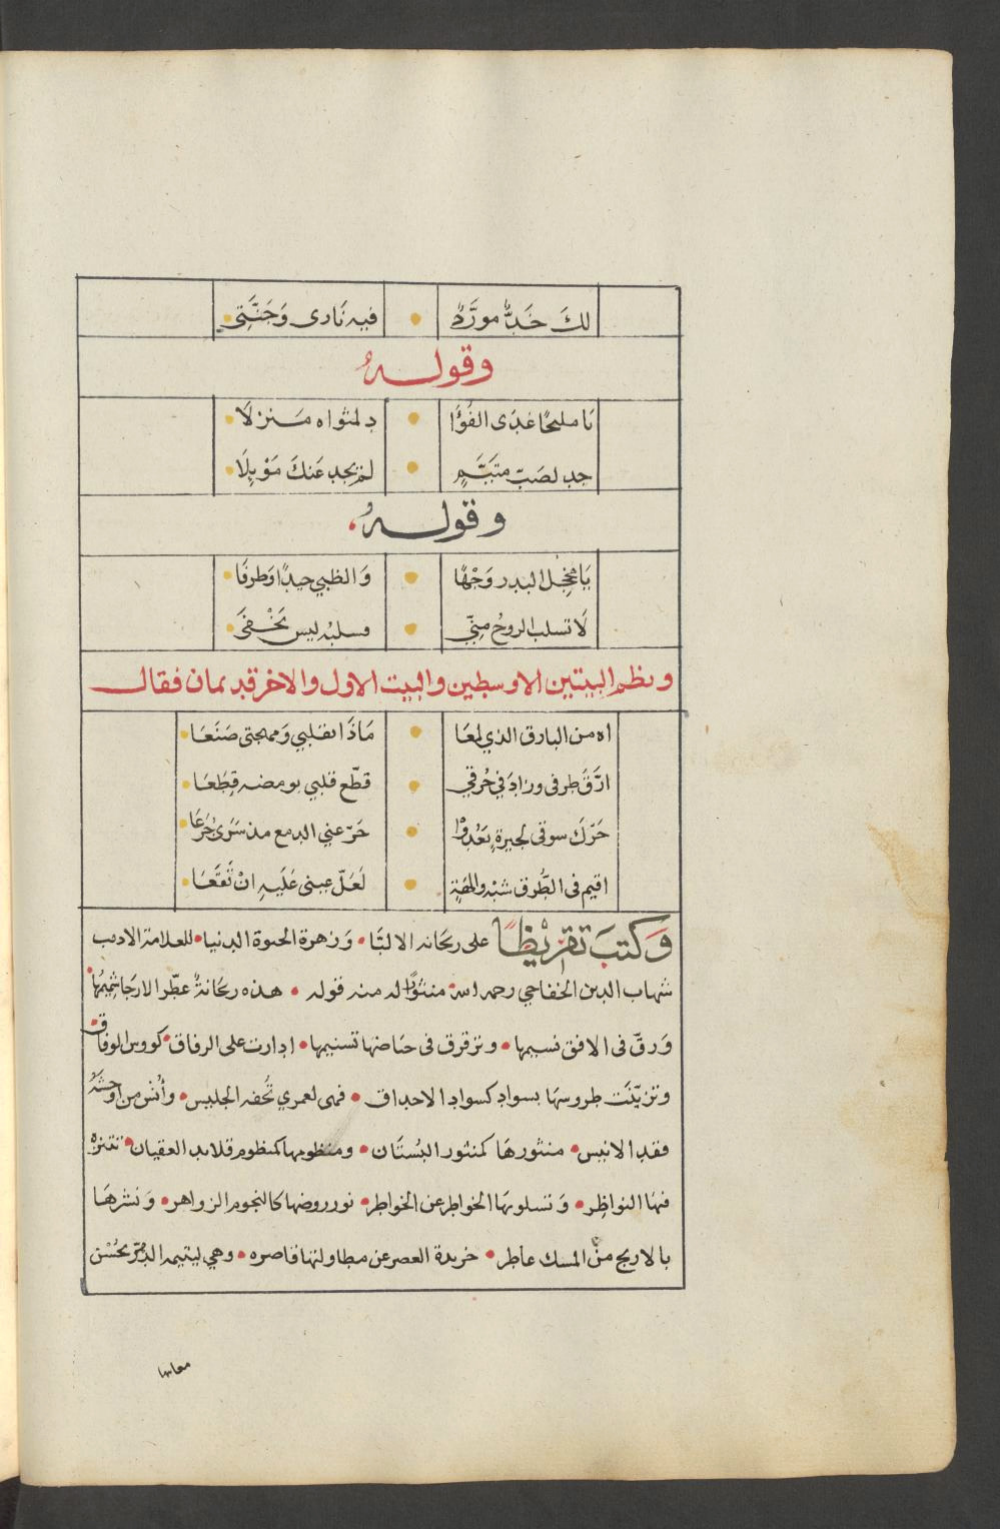 لكَ خَدٌّ مورَّدٌ • فيه نَارى وَجَنَّتِى
وقولــهُ
يَا مليحًا غدَى الفُؤَا • د لمثواه مَنزلَا
جد لصَبّ متَيَّمٍ • لم يجد عَنكَ مَوْيِلَا
وقولــهُ
يَا مخجِل البدر وَجْهًا • وَالظبي جيدًا وَطرفَا
لَا تسلب الروحُ مِنّي • فسلبُه ليس يَخْفَى
ونظم البيتين الاوسطين والبيت الاول والاخر قديمان فقال
اه من البارق الذي لمعَا • مَاذَا بقلبي وَمهجتى صَنَعَا
ارَّقَ طرفى وزادَ في حُرقي • قطّع قلبي بومضه قِطَعَا
حَرّكَ شوقى لجيرةٍ بَعُدوا • عني الدمع مذ جُرَعَا
اقيم فى الطُّرق شبْه والهَةٍ • لعَلّ عينى عَليهِ انْ تَقعَا
وَكتبَ تقريظًا على ريحانه الالبَّا • وَزهرة الحيوة الدنيا • للعلامة الاديب
شهاب الدين الخفاجي رحمه الله منثورًا له منه قوله • هذه ريحَانةٌ عطّر الارجا شميمُها
وَرقّ فى الافق نسيمها • وترقرق فى حيَاضها تسنيمها • ادارت على الرفاق • كووس الوفاق
وتزيّنَت طروسهَا بسوادٍ كسواد الاحداق • فهى لعمري تُحفه الجليس • وأُنْس من اوحشَهُ
فقد الانيس • منثورهَا كمنثور البُستَان • ومنظومها كمنظوم قلايد العقيان • تتنزه
فيهَا النواظِر • وَتسلو بهَا الخواطِر عن الخواطِر • نور روضها كالنجوم الزواهر • وَنشرهَا
بالاريج منْ المسك عاطر • خريدة العصر عن مطاولتها قاصره • وهي ليتيمه الدهر بحُسْن
معانيها